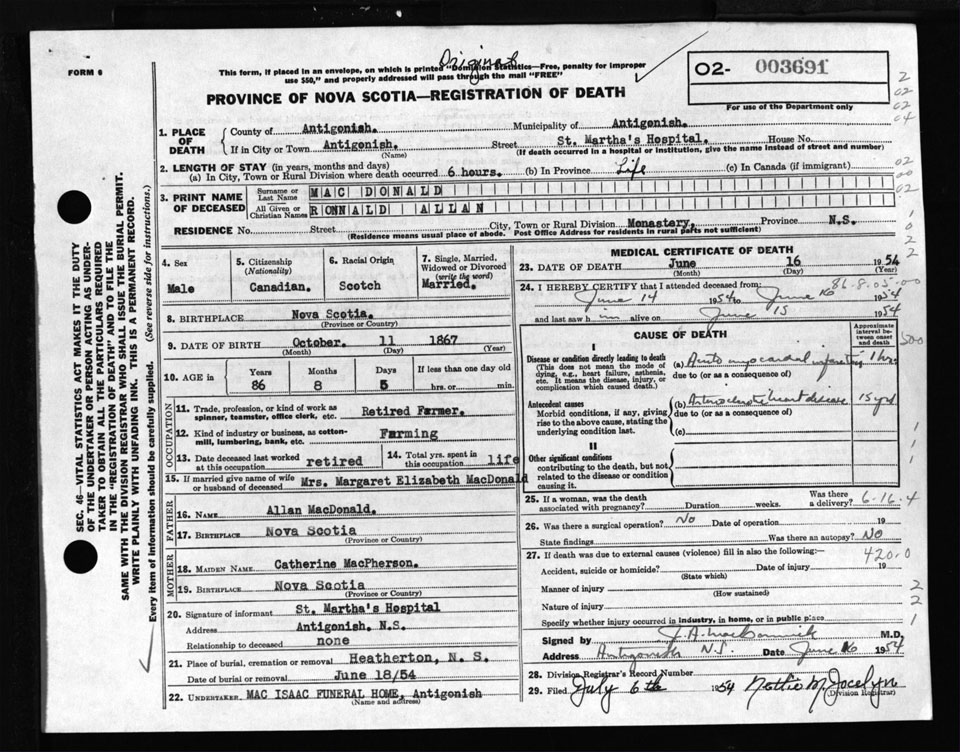 Original
FORM 6
This form, if placed in an envelope, on which is printed "Dominion Statistics—Free, penalty for improper
use $50," and properly addressed will pass through the mail "FREE"
O2- 003691
For use of the Department only
PROVINCE OF NOVA SCOTIA—REGISTRATION OF DEATH
1. PLACE OF DEATH { County of Antigonish. Municipality of Antigonish.
If in City or Town Antigonish. Street St. Martha's Hospital. House No.
(Name) (If death occurred in a hospital or institution, give the name instead of street and number)
2. LENGTH OF STAY (in years, months and days)
(a) In City, Town or Rural Division where death occurred 6 hours. (b) In Province Life (c) In Canada (if immigrant)
3. PRINT NAME OF DECEASED { Surname or Last Name MAC DONALD
All Given or Christian Names RONNALD ALLAN
RESIDENCE No. Street City, Town or Rural Division Monastery. Province N.S.
(Residence means usual place of abode. Post Office Address for residents in rural parts not sufficient)
4. Sex Male
5. Citizenship (Nationality) Canadian.
6. Racial Origin Scotch
7. Single, Married, Widowed or Divorced (write the word) Married.
8. BIRTHPLACE Nova Scotia.
(Province or Country)
9. DATE OF BIRTH October. 11 1867
(Month) (Day) (Year)
10. AGE in Years Months Days If less than one day old
86 8 5 hrs. or min.
OCCUPATION
11. Trade, profession, or kind of work as spinner, teamster, office clerk, etc. Retired Farmer.
12. Kind of industry or business, as cotton-mill, lumbering, bank, etc. Farming
13. Date deceased last worked at this occupation retired
14. Total yrs. spent in this occupation life
15. If married give name of wife or husband of deceased Mrs. Margaret Elizabeth MacDonald
FATHER
16. NAME Allan MacDonald.
17. BIRTHPLACE Nova Scotia
(Province or Country)
MOTHER
18. MAIDEN NAME Catherine MacPherson.
19. BIRTHPLACE Nova Scotia
(Province or Country)
20. Signature of informant St. Martha's Hospital
Address Antigonish, N.S.
Relationship to deceased none
21. Place of burial, cremation or removal Heatherton, N. S.
Date of burial or removal June 18/54
22. UNDERTAKER MAC ISAAC FUNERAL HOME, Antigonish
(Name and address)
MEDICAL CERTIFICATE OF DEATH
23. DATE OF DEATH June 16 1954
(Month) (Day) (Year)
86-8-05-00
24. I HEREBY CERTIFY that I attended deceased from:
June 14 1954 to June 16 1954
and last saw him alive on June 15 1954
CAUSE OF DEATH
Approximate interval between onset and death
I
Disease or condition directly leading to death
(This does not mean the mode of dying, e.g., heart failure, asthenia, etc. It means the disease, injury, or complication which caused death.)
(a) Acute myocardial infarction 1 hr
due to (or as a consequence of)
Antecedent causes
Morbid conditions, if any, giving rise to the above cause, stating the underlying condition last.
(b) Arteriosclerotic heart disease 15 yrs
due to (or as a consequence of)
(c)
II
Other significant conditions
contributing to the death, but not related to the disease or condition causing it.
25. If a woman, was the death associated with pregnancy? Duration weeks. Was there a delivery? 6-16-4
26. Was there a surgical operation? No Date of operation 19
State findings Was there an autopsy? No
27. If death was due to external causes (violence) fill in also the following:— 420.0
Accident, suicide or homicide? Date of injury 19
(State which)
Manner of injury
(How sustained)
Nature of injury
Specify whether injury occurred in industry, in home, or in public place
Signed by J. A. MacCormick M.D.
Address Antigonish N.S. Date June 16 1954
28. Division Registrar's Record Number
29. Filed July 6th 1954 Nettie M. Jocelyn
(Division Registrar)
SEC. 46—VITAL STATISTICS ACT MAKES IT THE DUTY
OF THE UNDERTAKER OR PERSON ACTING AS UNDER-
TAKER TO OBTAIN ALL THE PARTICULARS REQUIRED
IN THE "REGISTRATION OF DEATH" AND TO FILE THE
SAME WITH THE DIVISION REGISTRAR WHO SHALL ISSUE THE BURIAL PERMIT.
WRITE PLAINLY WITH UNFADING INK. THIS IS A PERMANENT RECORD.
Every item of information should be carefully supplied. (See reverse side for instructions.)
2
02
02
04
02
00
02
1
0
2
2
500
1
1
2
2
1